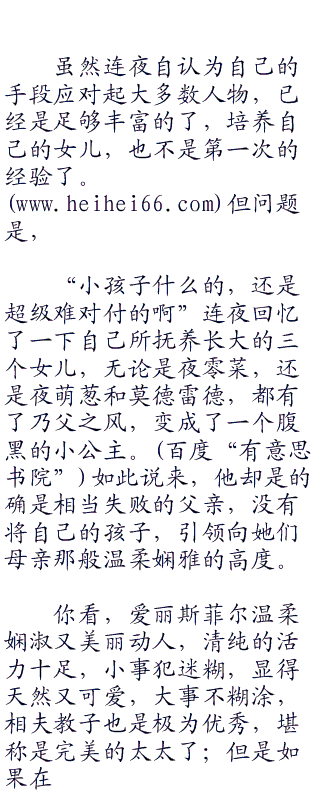 虽然连夜自认为自己的
手段应对起大多数人物，已
经是足够丰富的了，培养自
己的女儿，也不是第一次的
经验了。
(www.heihei66.com)但问题
是，
“小孩子什么的，还是
超级难对付的啊”连夜回忆
了一下自己所抚养长大的三
个女儿，无论是夜零菜，还
是夜萌葱和莫德雷德，都有
了乃父之风，变成了一个腹
黑的小公主。(百度“有意思
书院”)如此说来，他却是的
确是相当失败的父亲，没有
将自己的孩子，引领向她们
母亲那般温柔娴雅的高度。
你看，爱丽斯菲尔温柔
娴淑又美丽动人，清纯的活
力十足，小事犯迷糊，显得
天然又可爱，大事不糊涂，
相夫教子也是极为优秀，堪
称是完美的太太了；但是如
果在